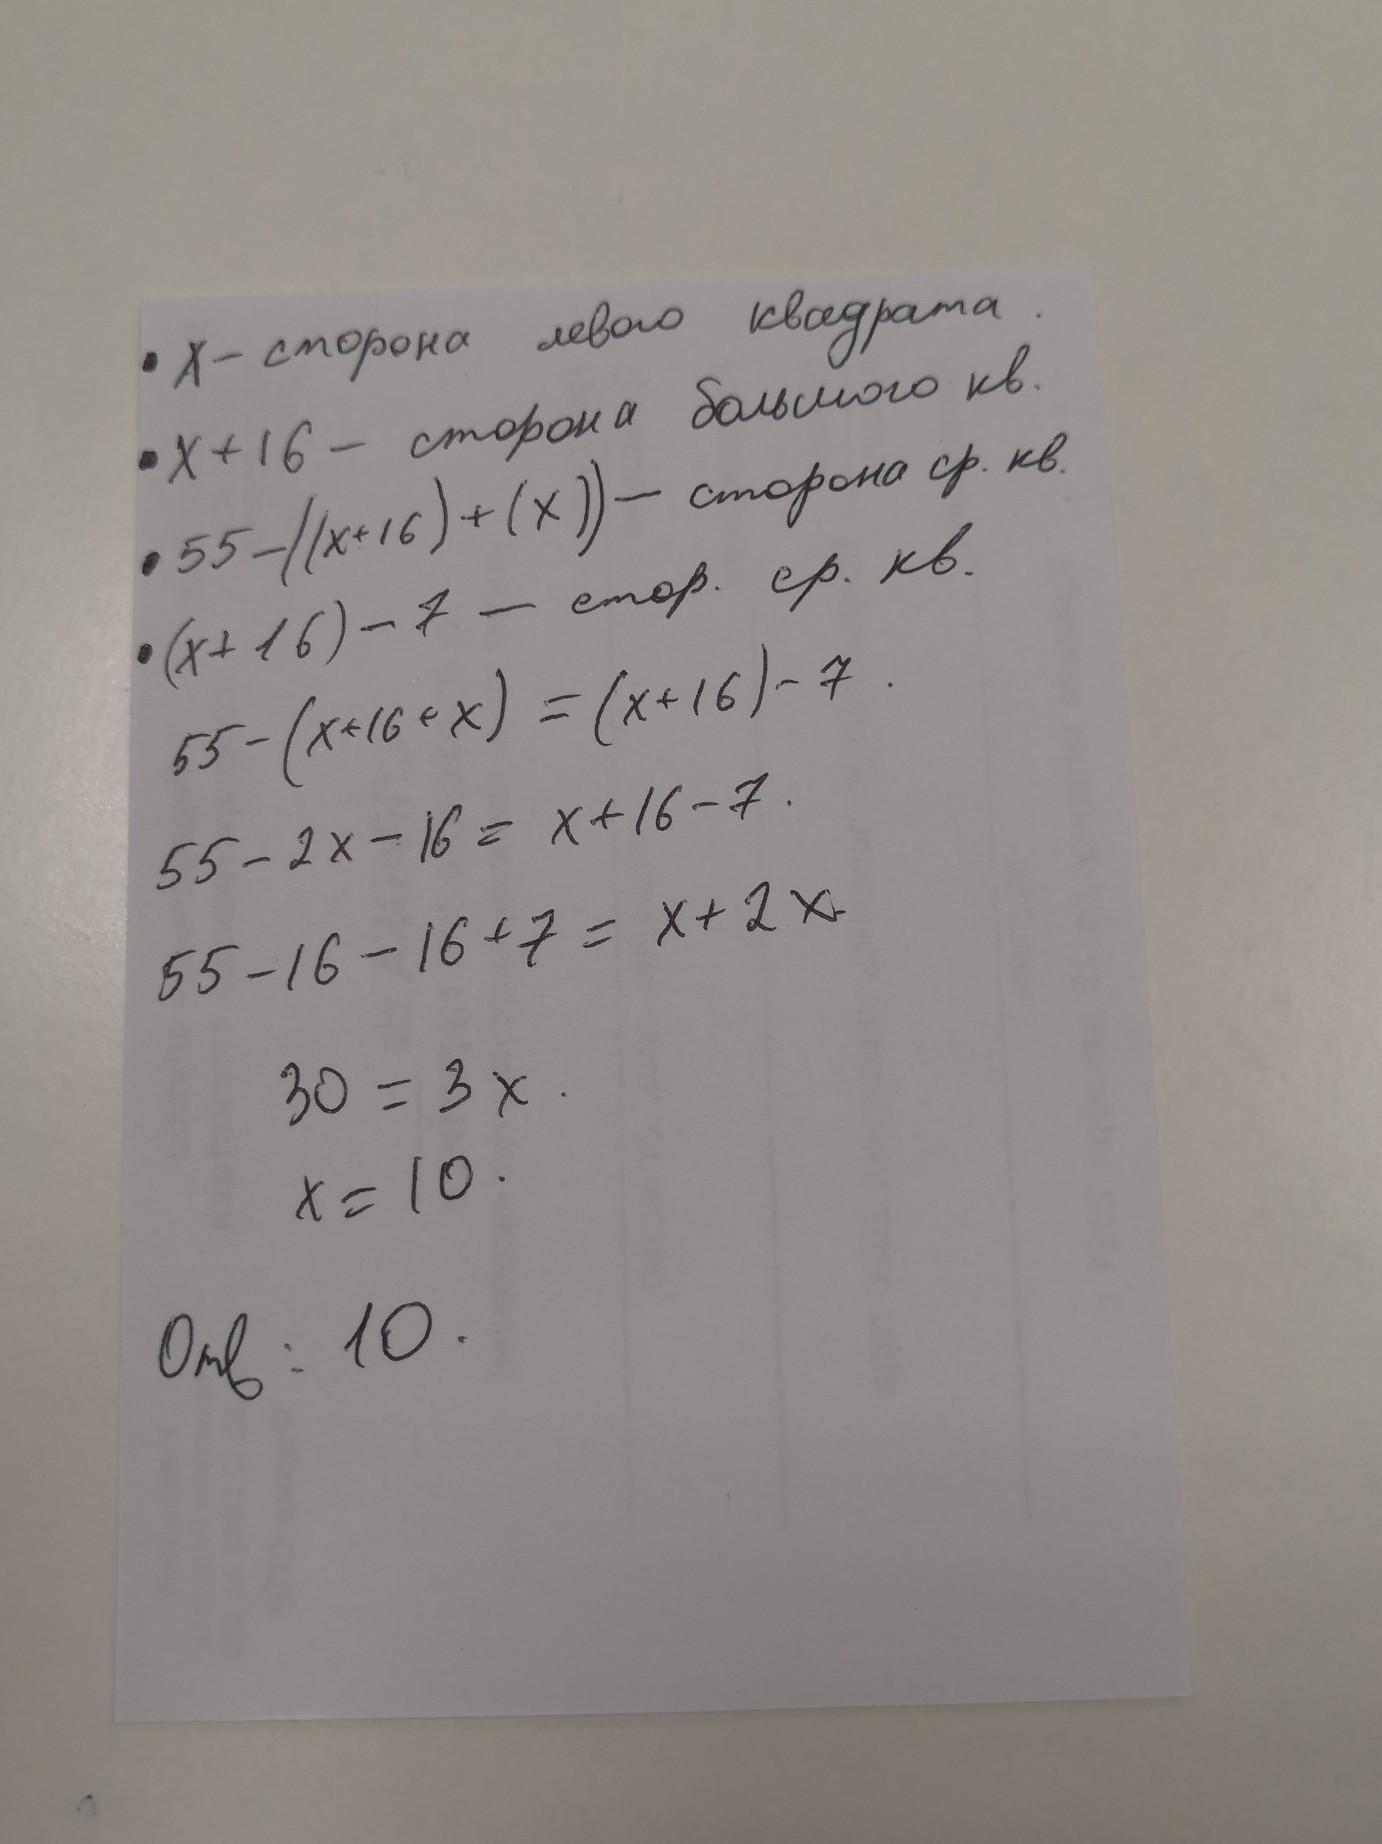 • x – сторона левого квадрата.
• x + 16 – сторона большого кв.
• 55 – ((x+16) + (x)) – сторона ср. кв.
• (x + 16) – 7 – стор. ср. кв.
55 – (x+16+x) = (x+16) – 7.
55 – 2x – 16 = x + 16 – 7.
55 – 16 – 16 + 7 = x + 2x
30 = 3x.
x = 10.
Отв: 10.